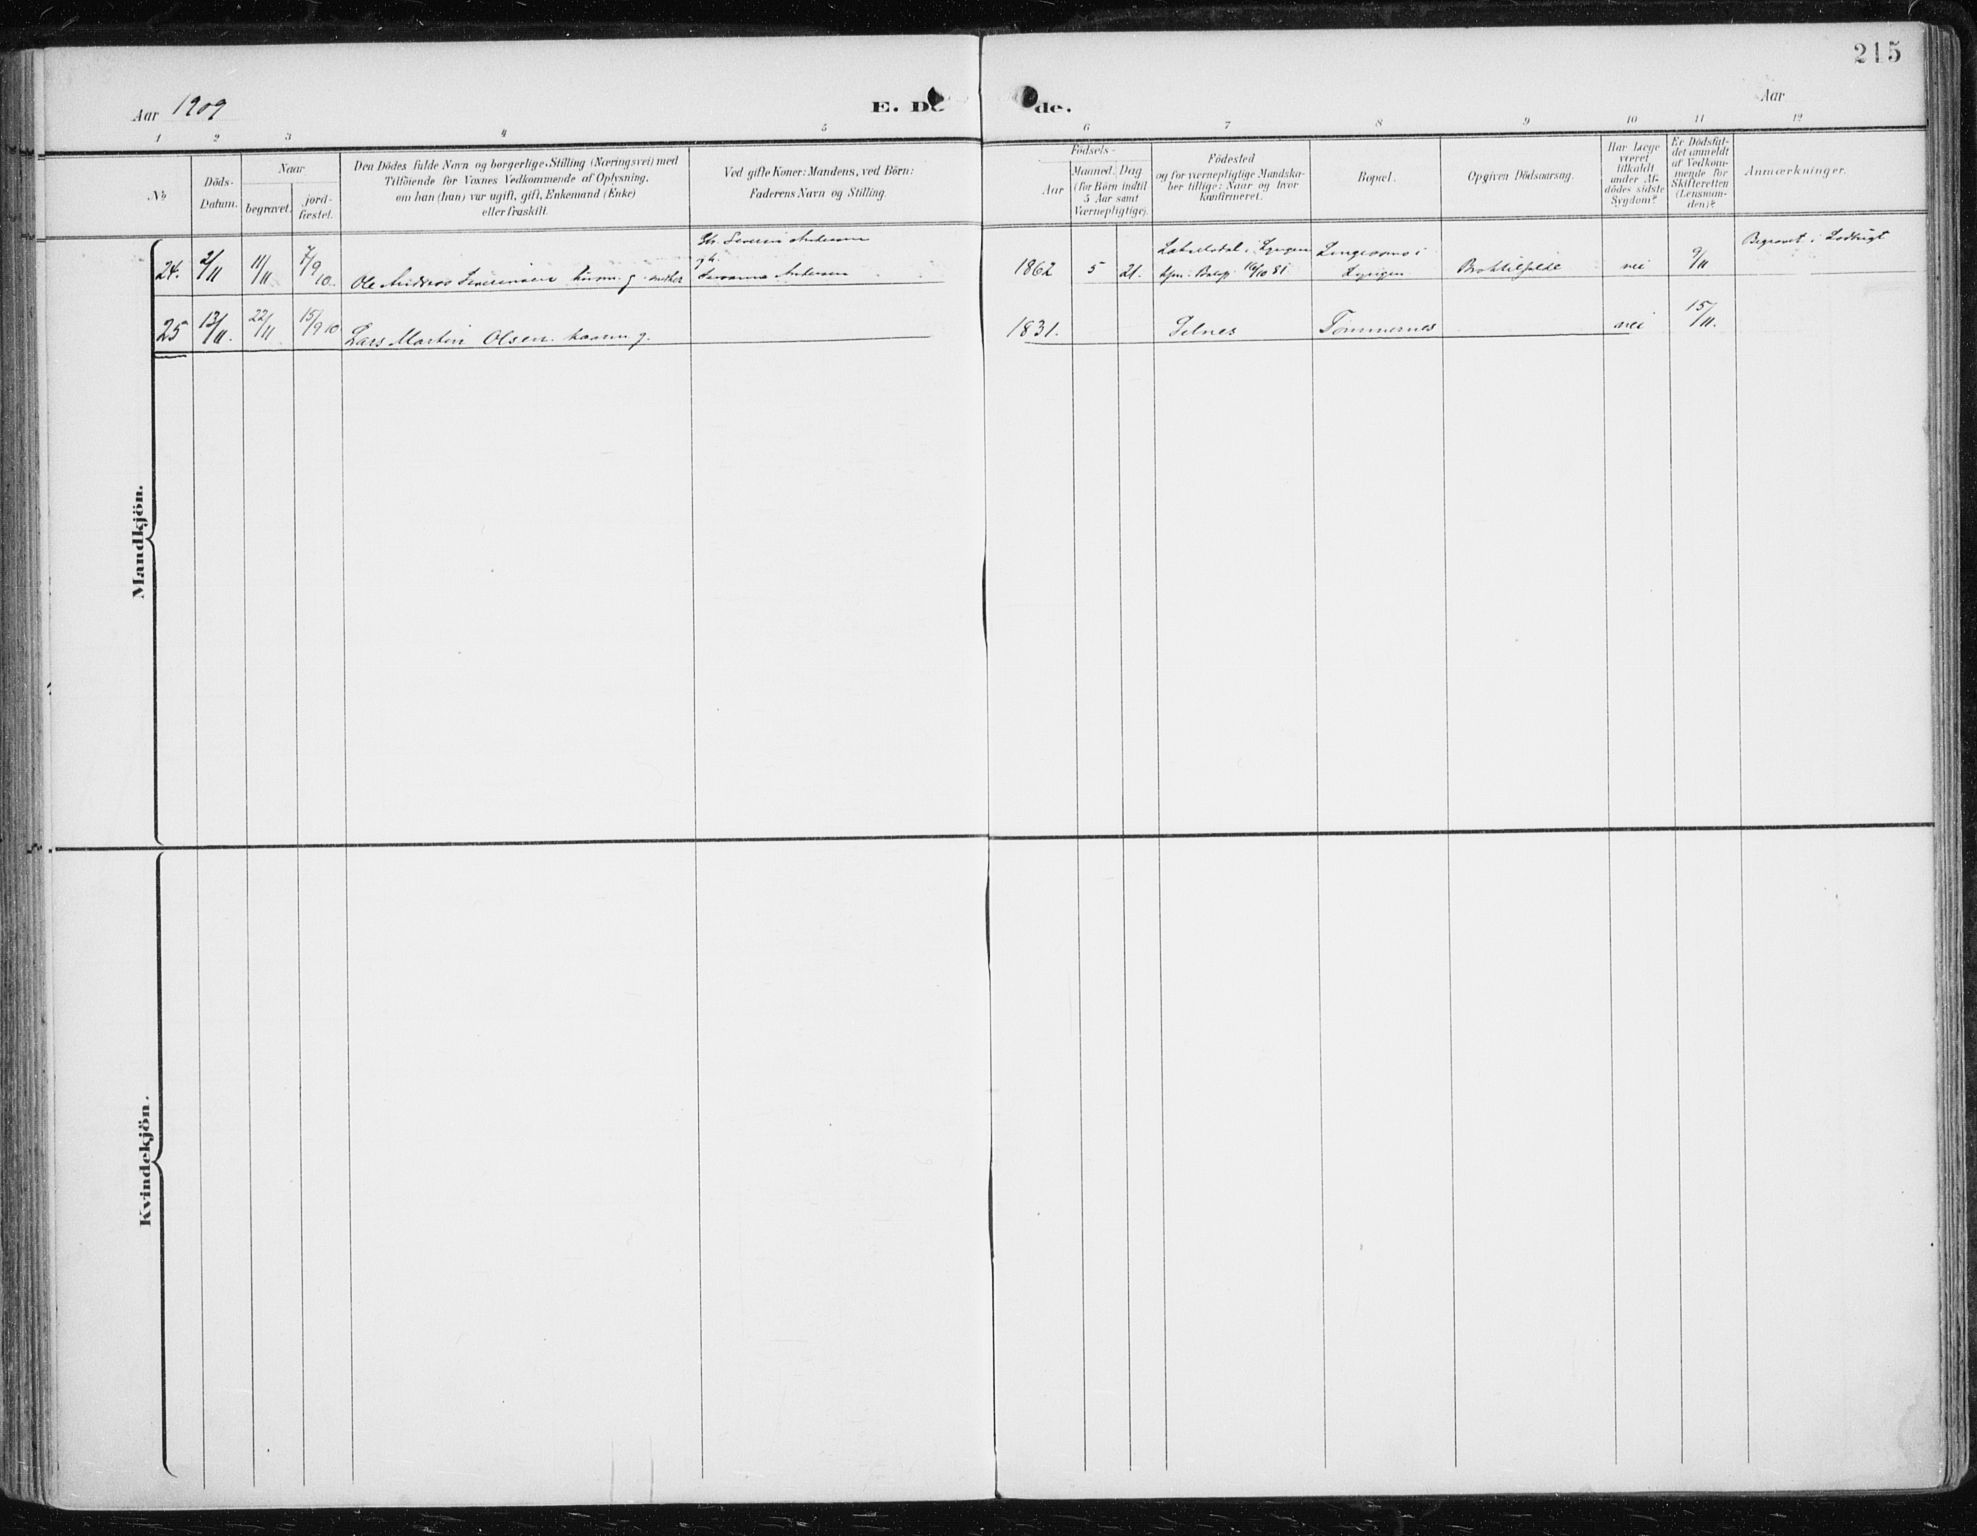 215
Aar 1909
E. Dö
de.
Aar
1 2 3 4 5 6 7 8 9 10 11 12
No
Döds-
Datum.
Naar
begravet.
jord-
fæstet.
Den Dödes fulde Navn og borgerlige Stilling (Næringsvei) med
Tilföiende for Voxnes Vedkommende af Oplysning,
om han (hun) var ugift, gift, Enkemand (Enke)
eller fraskilt.
Ved gifte Koner: Mandens, ved Börn:
Faderens Navn og Stilling.
Födsels-
Aar
Maaned. Dag
(for Börn indtil
5 Aar samt
Værnepligtige).
Födested
og for værnepligtige Mandska-
ber tillige: Naar og hvor
Konfirmeret.
Bopæl.
Opgiven Dödsaarsag.
Har Læge
været
tilkaldt
under Af-
dödes sidste
Sygdom?
Er Dödsfal-
det anmeldt
af Vedkom-
mende for
Skifteretten
(Lensman-
den)?
Anmærkninger.
Mandkjön.
24. 2/11 11/11 7/9 10. Ole Andreas Severinsen
Severin Andersen
Susanna Andersen
1862 5 21.
i Lyngen
16/10 81.
i
Lyngen
nei 9/11
Begravet i
25 13/11. 22/11 15/9 10 Lars Martin Olsen. g.
1831. Selnes Tømmernes nei 15/11.
Kvindekjön.